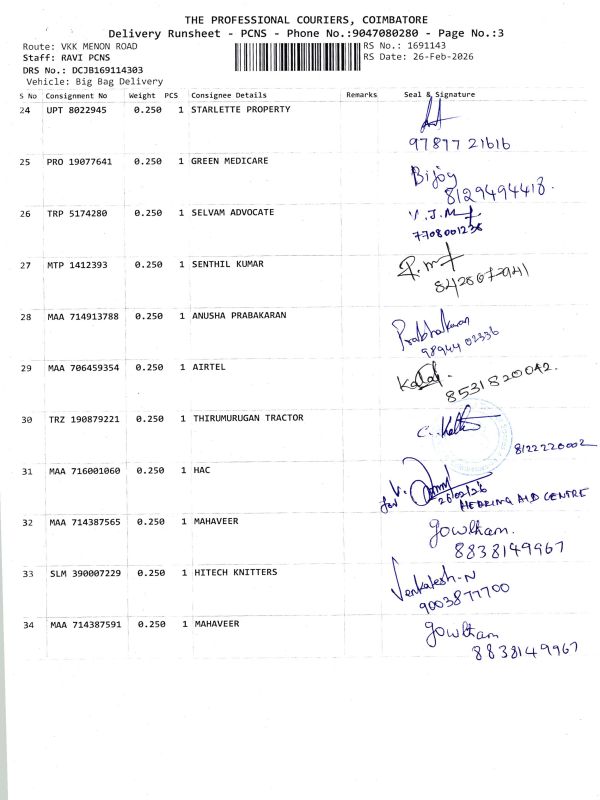 THE PROFESSIONAL COURIERS, COIMBATORE
Delivery Runsheet - PCNS - Phone No.:9047080280 - Page No.:3
Route: VKK MENON ROAD RS No.: 1691143
Staff: RAVI PCNS RS Date: 26-Feb-2026
DRS No.: DCJB169114303
Vehicle: Big Bag Delivery
S No Consignment No Weight PCS Consignee Details Remarks Seal & Signature
24 UPT 8022945 0.250 1 STARLETTE PROPERTY
97877 21616
25 PRO 19077641 0.250 1 GREEN MEDICARE Bijoy
8129494418.
26 TRP 5174280 0.250 1 SELVAM ADVOCATE
7708001236
27 MTP 1412393 0.250 1 SENTHIL KUMAR
8428677941
28 MAA 714913788 0.250 1 ANUSHA PRABAKARAN Prabhakaran
98944 02336
29 MAA 706459354 0.250 1 AIRTEL
8531820042.
30 TRZ 190879221 0.250 1 THIRUMURUGAN TRACTOR
8122220002
31 MAA 716001060 0.250 1 HAC
for 26/02/26
HEARING AID CENTRE
32 MAA 714387565 0.250 1 MAHAVEER Gowtham.
8838149967
33 SLM 390007229 0.250 1 HITECH KNITTERS Venkatesh-N
9003877700
34 MAA 714387591 0.250 1 MAHAVEER Gowtham
8838149967